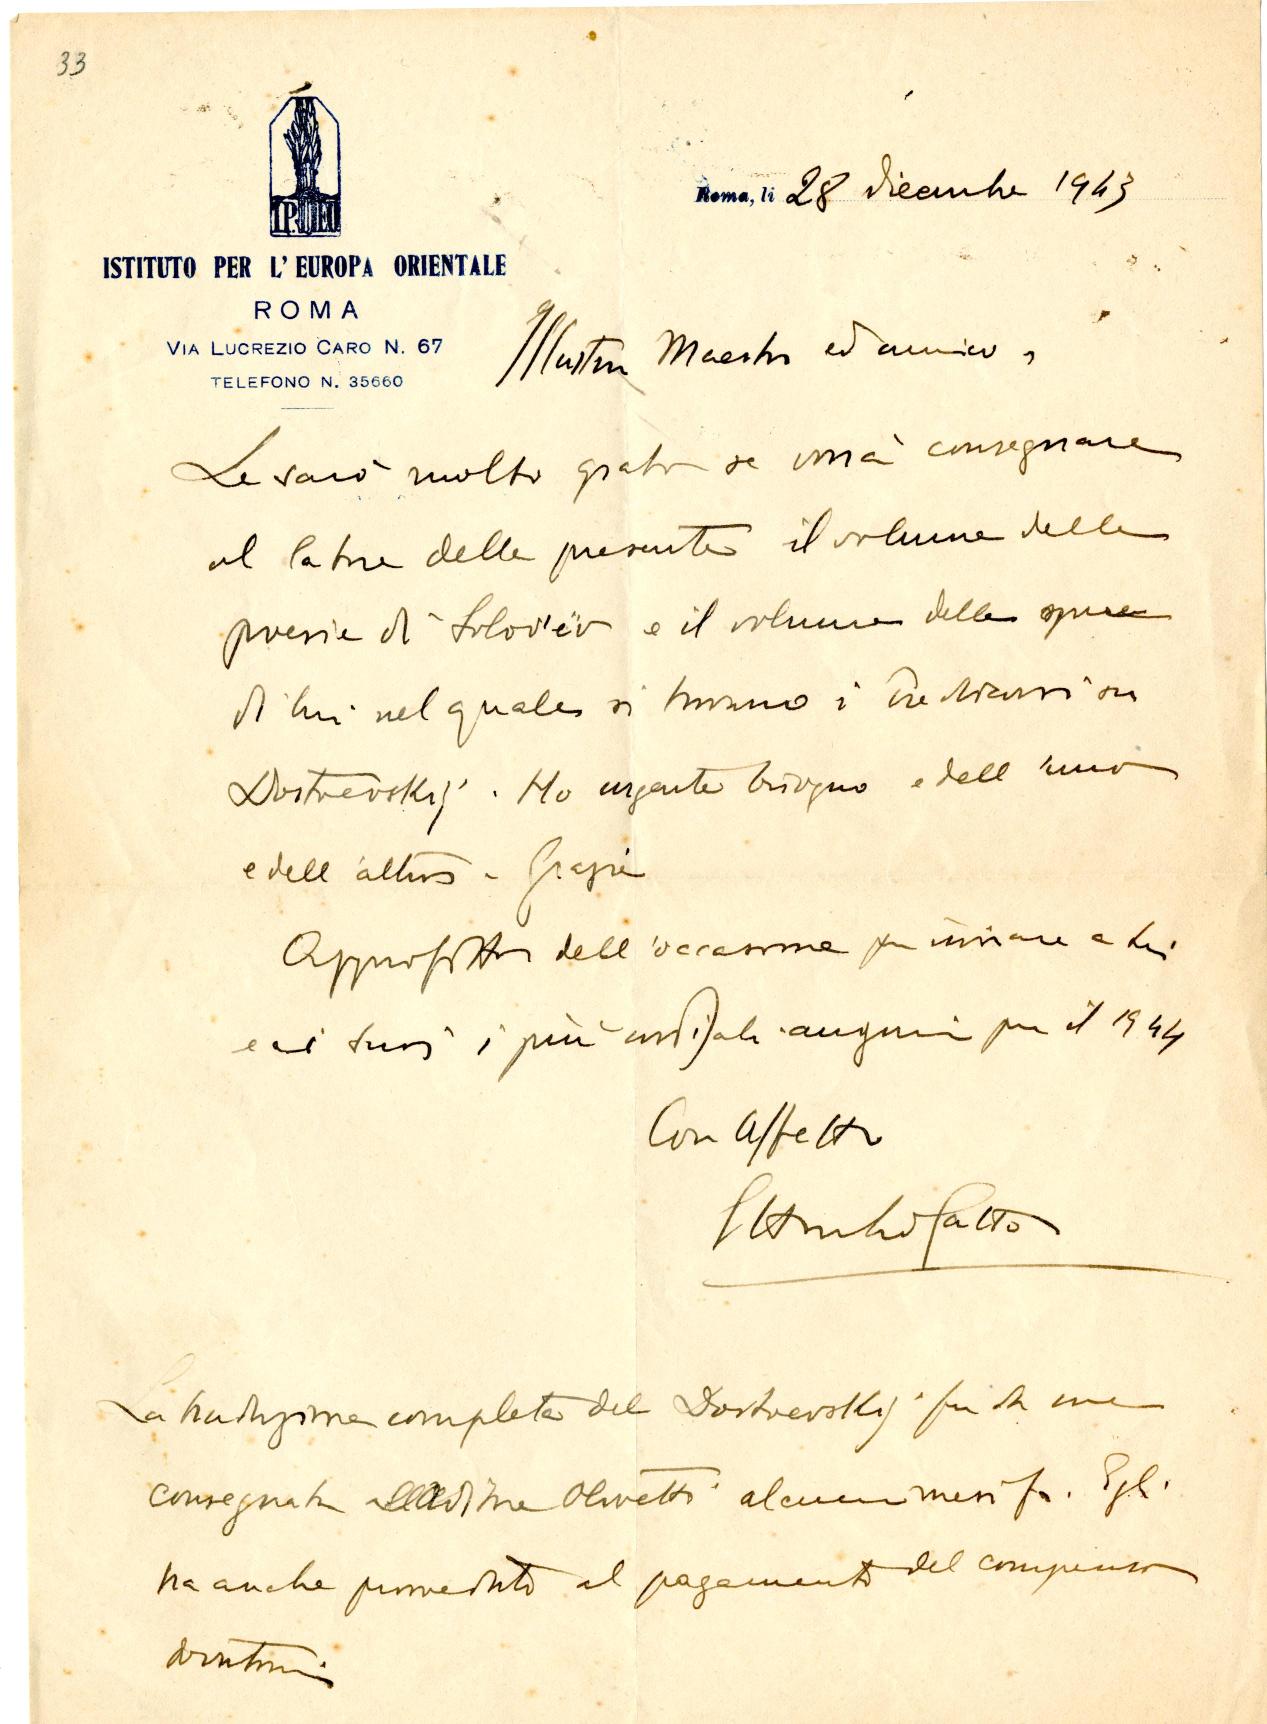 33
I.P.L'E.O.
ISTITUTO PER L'EUROPA ORIENTALE
ROMA
VIA LUCREZIO CARO N. 67
TELEFONO N. 35660
Roma, li 28 dicembre 1943
Illustre Maestro ed amico,
Le sarò molto grato se vorrà consegnare
al latore della presente il volume delle
poesie di Solov'ëv e il volume delle opere
di lui nel quale si trovano i Tre discorsi su
Dostoevskij. Ho urgente bisogno e dell'uno
e dell'altro - Grazie
Approfitto dell'occasione per inviare a Lei
e ai suoi i più cordiali auguri per il 1944
Con affetto
Ettore Lo Gatto
La traduzione completa del Dostoevskij fu da me
consegnata all'editore Olivetti alcuni mesi fa. Egli
ha anche provveduto al pagamento del compenso
dovutomi